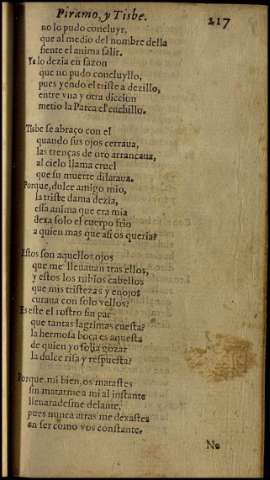 Piramo, y Tisbe. 217
no lo pudo concluyr,
que al medio del nombre della
siente el anima salir.
Ya lo dezia en sazon
que no pudo concluyllo,
pues yendo el triste a dezillo,
entre vna y otra diccion
metio la Parca el cuchillo.
Tisbe se abraço con el
quando sus ojos cerraua,
las trenças de oro arrancaua,
al cielo llama cruel
que su muerte dilataua.
Porque, dulce amigo mio,
la triste dama dezia,
essa anima que era mia
dexa solo el cuerpo frio
a quien mas que assi os queria?
Estos son aquellos ojos
que me lleuauan tras ellos,
y estos los rubios cabellos
que mis tristezas y enojos
curaua con solo vellos?
Es este el rostro sin par
que tantas lagrimas cuesta?
la hermosa boca es aquesta
de quien yo solia gozar
la dulce risa y respuesta?
Porque mi bien, os matastes
sin matarme a mi al instante
lleuaradesme delante,
pues nunca atras me dexastes
en ser como vos constante.
No